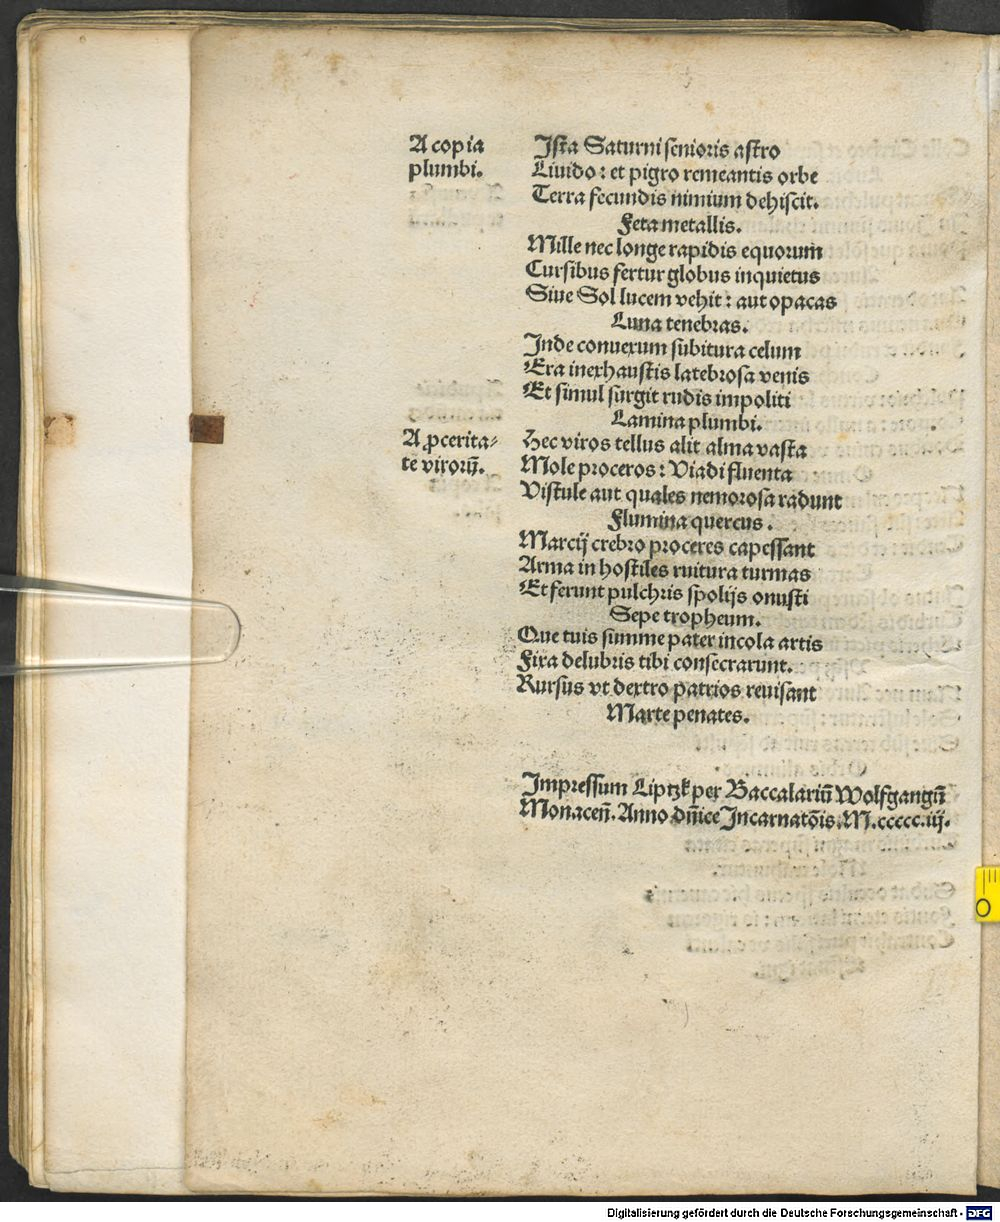 A copia
plumbi.
Ista Saturni senioris astro
Liuido: et pigro remeantis orbe
Terra fecundis nimium dehiscit.
Feta metallis.
Mille nec longe rapidis equorum
Cursibus fertur globus inquietus
Siue Sol lucem vehit: aut opacas
Luna tenebras.
Inde conuexum subitura celum
Era inexhaustis latebrosa venis
Et simul surgit rudis impoliti
Lamina plumbi.
A ꝓcerita-
te viroꝝ̃.
Hec viros tellus alit alma vasta
Mole proceros: Viadi fluenta
Vistule aut quales nemorosa radunt
Flumina quercus.
Marcij crebro proceres capessant
Arma in hostiles ruitura turmas
Et ferunt pulchris spolijs onusti
Sepe tropheum.
Que tuis summe pater incola artis
Fixa delubris tibi consecrarunt.
Rursus vt dextro patrios reuisant
Marte penates.
Impressum Liptzk per Baccalariũ Wolfgangũ
Monaceñ. Anno dñice Incarnatõis. M.ccccc.iij.
0
Digitalisierung gefördert durch die Deutsche Forschungsgemeinschaft - DFG